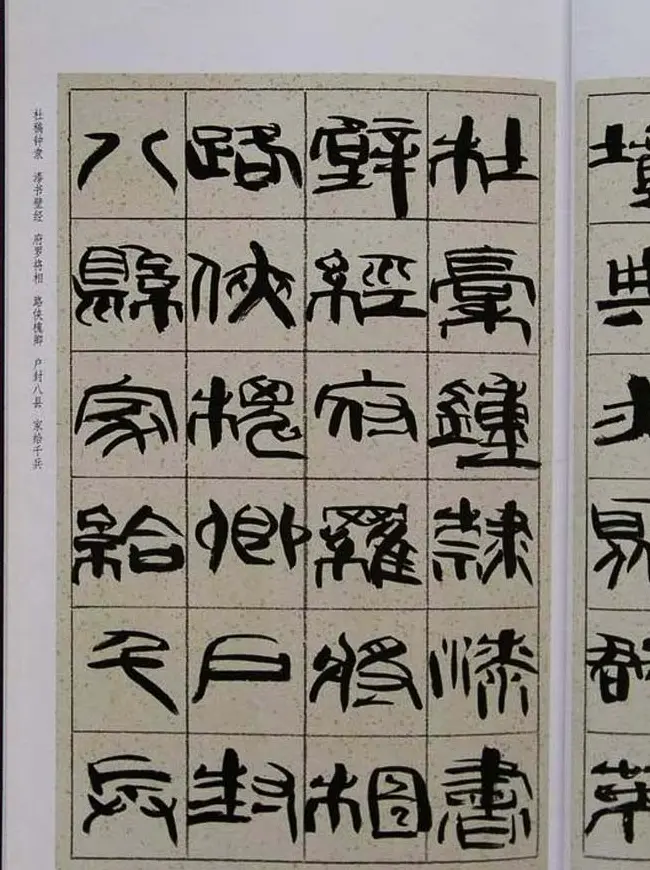 墳典亦聚群英
杜稾鍾隸漆書
壁經府羅將相
路俠槐卿户封
八縣家給千兵
杜稿钟隶 漆书壁经 府罗将相 路侠槐卿 户封八县 家给千兵